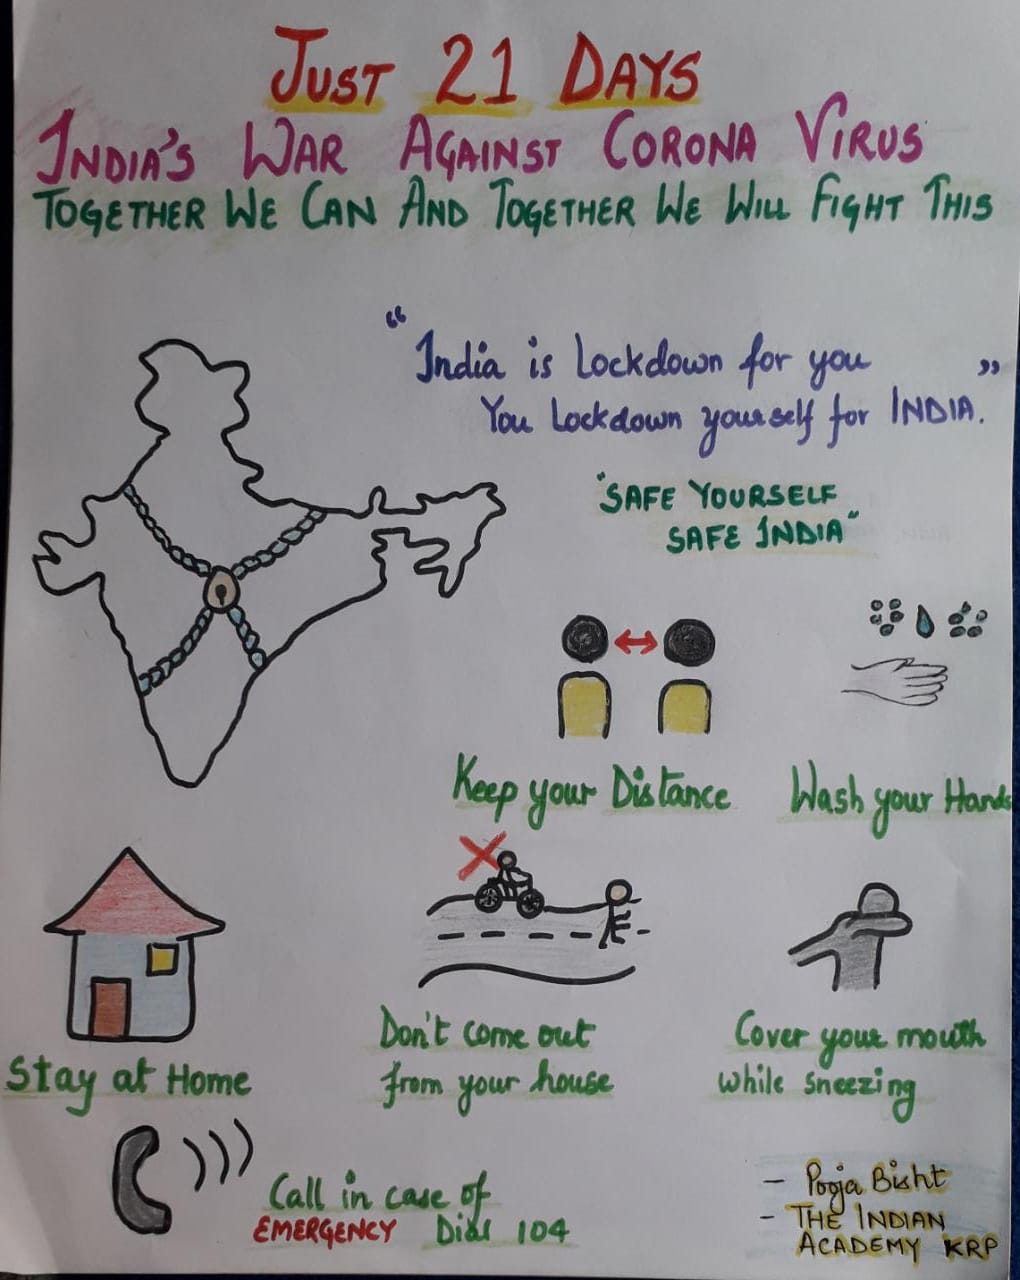 JUST 21 DAYS
INDIA'S WAR AGAINST CORONA VIRUS
TOGETHER WE CAN AND TOGETHER WE WILL FIGHT THIS
"India is Lockdown for you
You Lockdown yourself for INDIA."
"SAFE YOURSELF
SAFE INDIA"
Keep your Distance
Wash your Hands
Stay at Home
Don't come out
from your house
Cover your mouth
while sneezing
Call in case of
EMERGENCY Dial 104
- Pooja Bisht
- THE INDIAN
ACADEMY KRP